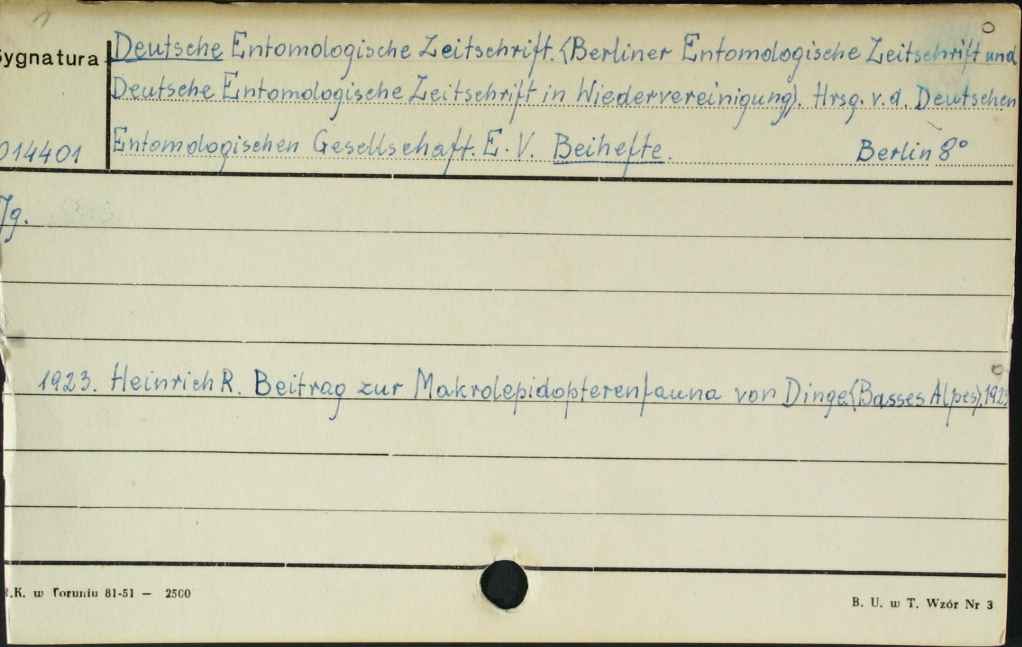 1
Sygnatura
014401
Deutsche Entomologische Zeitschrift. (Berliner Entomologische Zeitschrift und
Deutsche Entomologische Zeitschrift in Wiedervereinigung). Hrsg. v. d. Deutschen
Entomologischen Gesellschaft. E. V. Beihefte. Berlin 8°
Jg.
1923. Heinrich R. Beitrag zur Makrolepidopterenfauna von Dinge (Basses Alpes). 1923
.K. w Toruniu 81-51 — 2500
B. U. w T. Wzór Nr 3